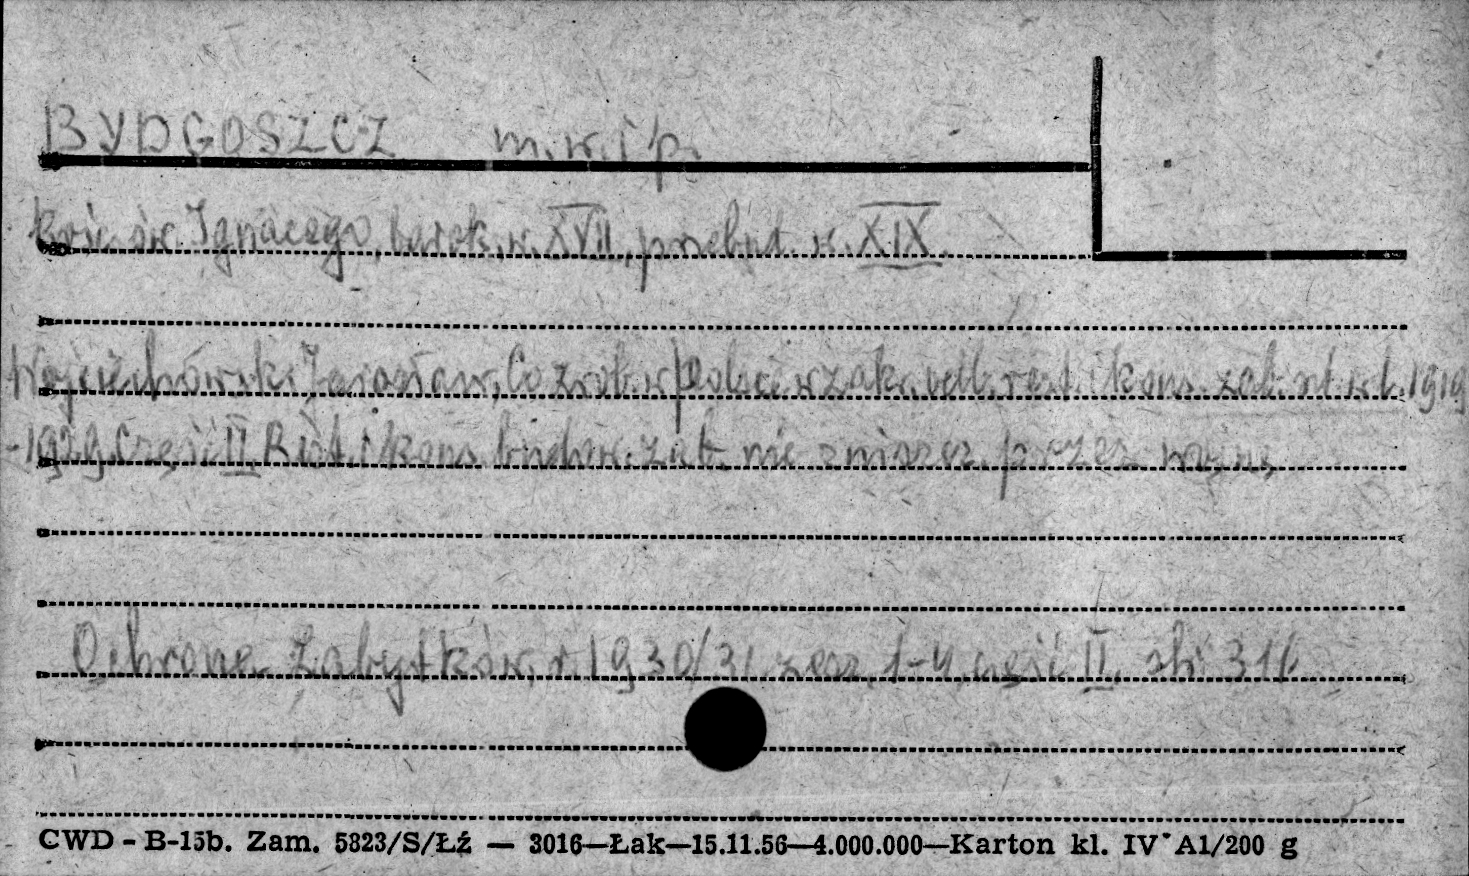 BYDGOSZCZ m.w. i p.
kośc. św. Ignacego, barok. w. XVII, przebud. w. XIX
Wojciechowski Jarosław, Co zrob. w Polsce w zakr. odb. rest. i kons. zab. szt. w l. 1919
-1929. Część II. Rest. i kons. budow. zab. nie zniszcz. przez wojnę
Ochrona Zabytków, r. 1930/31, zesz. 1-4, część II, str. 316
CWD - B-15b. Zam. 5823/S/Łź — 3016—Łak—15.11.56—4.000.000—Karton kl. IV A1/200 g